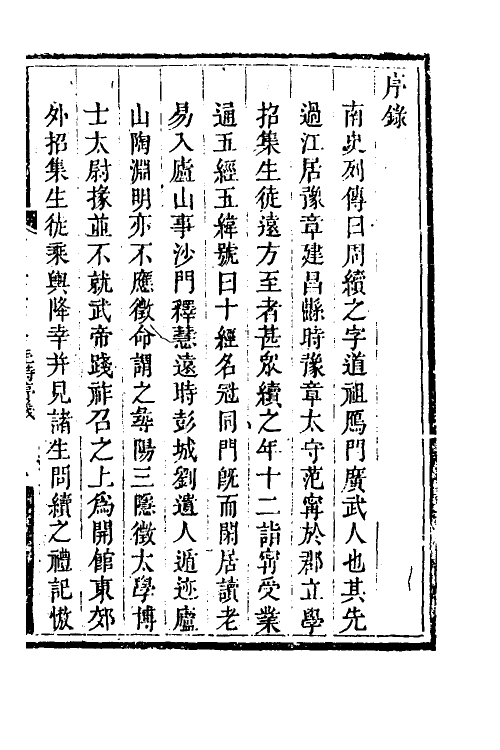 序錄
南史列傳曰周續之字道祖鴈門廣武人也其先
過江居豫章建昌縣時豫章太守范寗於郡立學
招集生徒遠方至者甚眾續之年十二詣寗受業
通五經五緯號曰十經名冠同門旣而閑居讀老
易入廬山事沙門釋慧遠時彭城劉遺人遁迹廬
山陶淵明亦不應徵命謂之尋陽三隱徵太學博
士太尉掾並不就武帝踐祚召之上爲開館東郊
外招集生徒乘輿降幸并見諸生問續之禮記傲
毛詩序義